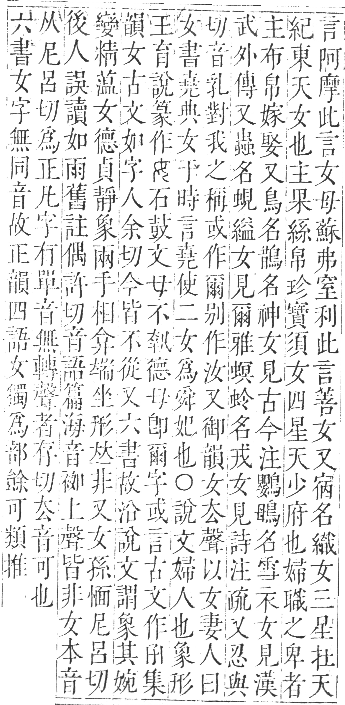 言阿摩此言女母蘇弗室利此言善女又宿名織女三星在天
紀東天女也主果絲帛珍寶須女四星天少府也婦職之卑者
主布帛嫁娶又鳥名鵲名神女見古今注鸚䳇名雪衣女見漢
武外傳又蟲名蜆縊女見爾雅螟蛉名戎女見詩注疏又忍與
切音乳對我之稱或作爾别作汝又御韻女去聲以女妻人曰
女書堯典女于時言堯使二女爲舜妃也○說文婦人也象形
王育說篆作 石鼓文母不 德母卽爾字或言古文作 集
韻女古文如字人余切今皆不從又六書故㳂說文謂象其婉
孌精蘊女德貞靜象兩手相弇端坐形 非又女孫愐尼呂切
後人誤讀如雨舊註偶許切音語篇海音 上聲皆非女本音
从尼呂切爲正凡字有單音無轉聲者存切去音可也
六書女字無同音故正韻四語女獨爲部餘可類推